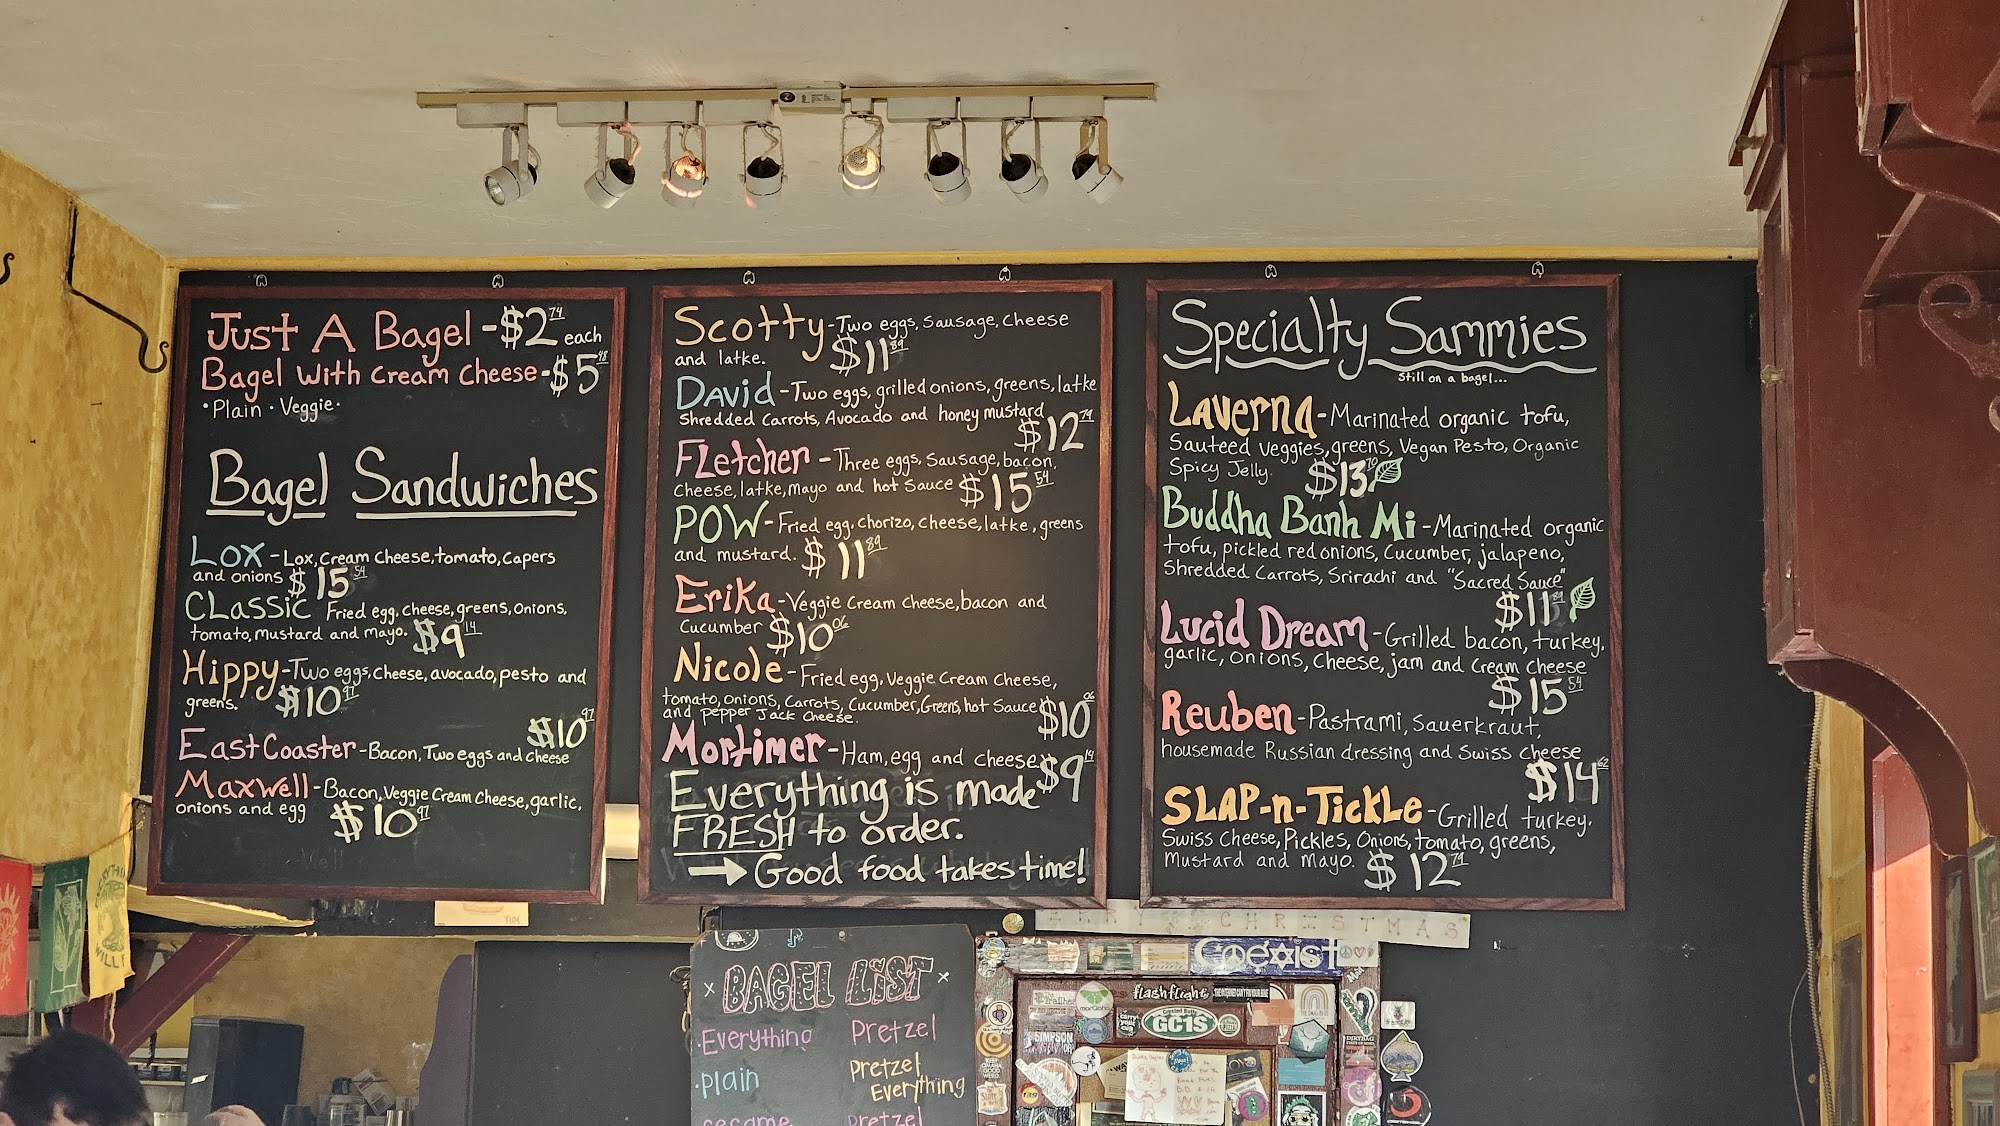 Just A Bagel - $2 74 each
Bagel With Cream Cheese - $5 48
• Plain • Veggie •
Bagel Sandwiches
Lox - Lox, Cream Cheese, tomato, capers
and onions $15 54
Classic Fried egg, cheese, greens, onions,
tomato, mustard and mayo. $9 14
Hippy - Two eggs, cheese, avocado, pesto and
greens. $10 97
$10 97
East Coaster - Bacon, Two eggs and Cheese
Maxwell - Bacon, Veggie Cream Cheese, garlic,
onions and egg $10 97
Scotty - Two eggs, Sausage, Cheese
and latke. $11 89
David - Two eggs, grilled onions, greens, latke
Shredded Carrots, Avocado and honey mustard
$12 79
Fletcher - Three eggs, Sausage, bacon,
Cheese, latke, mayo and hot Sauce $15 54
POW - Fried egg, chorizo, cheese, latke, greens
and mustard. $11 89
Erika - Veggie Cream Cheese, bacon and
Cucumber $10 06
Nicole - Fried egg, Veggie Cream Cheese,
tomato, onions, Carrots, Cucumber, Greens, hot Sauce
and pepper Jack Cheese. $10 06
Mortimer - Ham, egg and cheese $9 14
Everything is made
FRESH to order.
→ Good food takes time!
Specialty Sammies
Still on a bagel...
Laverna - Marinated organic tofu,
Sauteed veggies, greens, Vegan Pesto, Organic
Spicy Jelly. $13 70
Buddha Banh Mi - Marinated organic
tofu, pickled red onions, Cucumber, jalapeno,
Shredded Carrots, Srirachi and "Sacred Sauce"
$11 89
Lucid Dream - Grilled bacon, turkey,
garlic, onions, Cheese, jam and Cream cheese
$15 54
Reuben - Pastrami, Sauerkraut,
housemade Russian dressing and Swiss cheese
$14 62
SLAP-n-Tickle - Grilled turkey,
Swiss Cheese, Pickles, Onions, tomato, greens,
Mustard and Mayo. $12 79
YUM
BAGEL LIST
• Everything
• plain
sesame
Pretzel
Pretzel Everything
pretzel
CHRISTMAS
COEXIST
flashflight
GC1S
SIMPSON